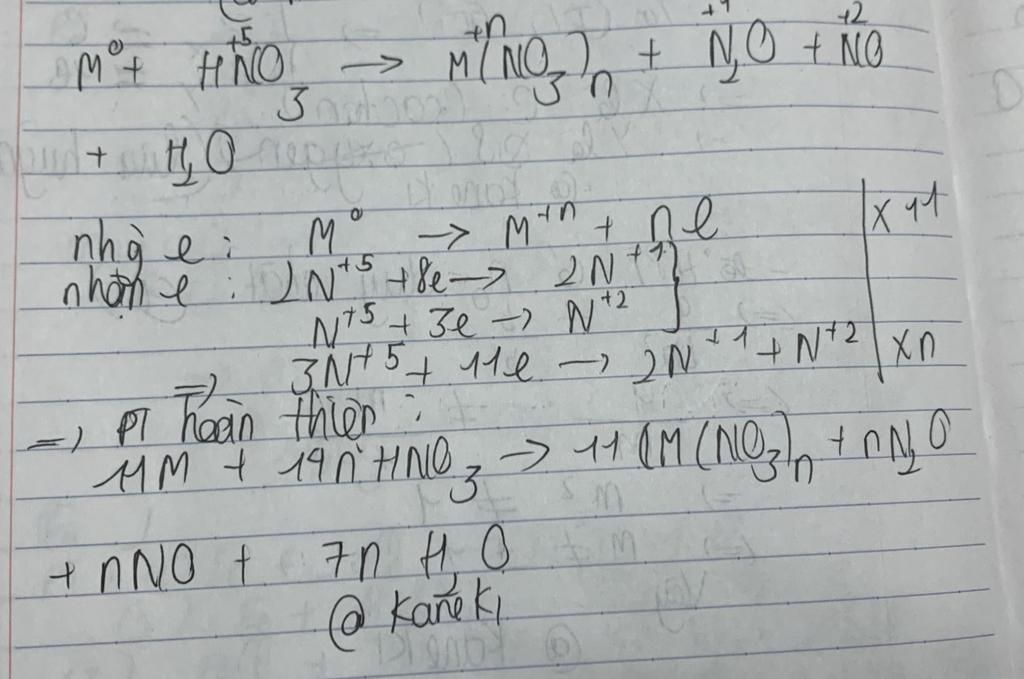 M⁰ + HN⁺⁵O₃ → M⁺ⁿ(NO₃)ₙ + N₂⁺¹O + N⁺²O
+ H₂O
nhậ e : M⁰ → M⁺ⁿ + ne | x 11
nhận e : 2N⁺⁵ + 8e → 2N⁺¹ }
N⁺⁵ + 3e → N⁺² }
=> 3N⁺⁵ + 11e → 2N⁺¹ + N⁺² | xn
=> PT hoàn thiện :
11M + 14n HNO₃ → 11 (M(NO₃)ₙ + nN₂O
+ nNO + 7n H₂O
@ Kaneki